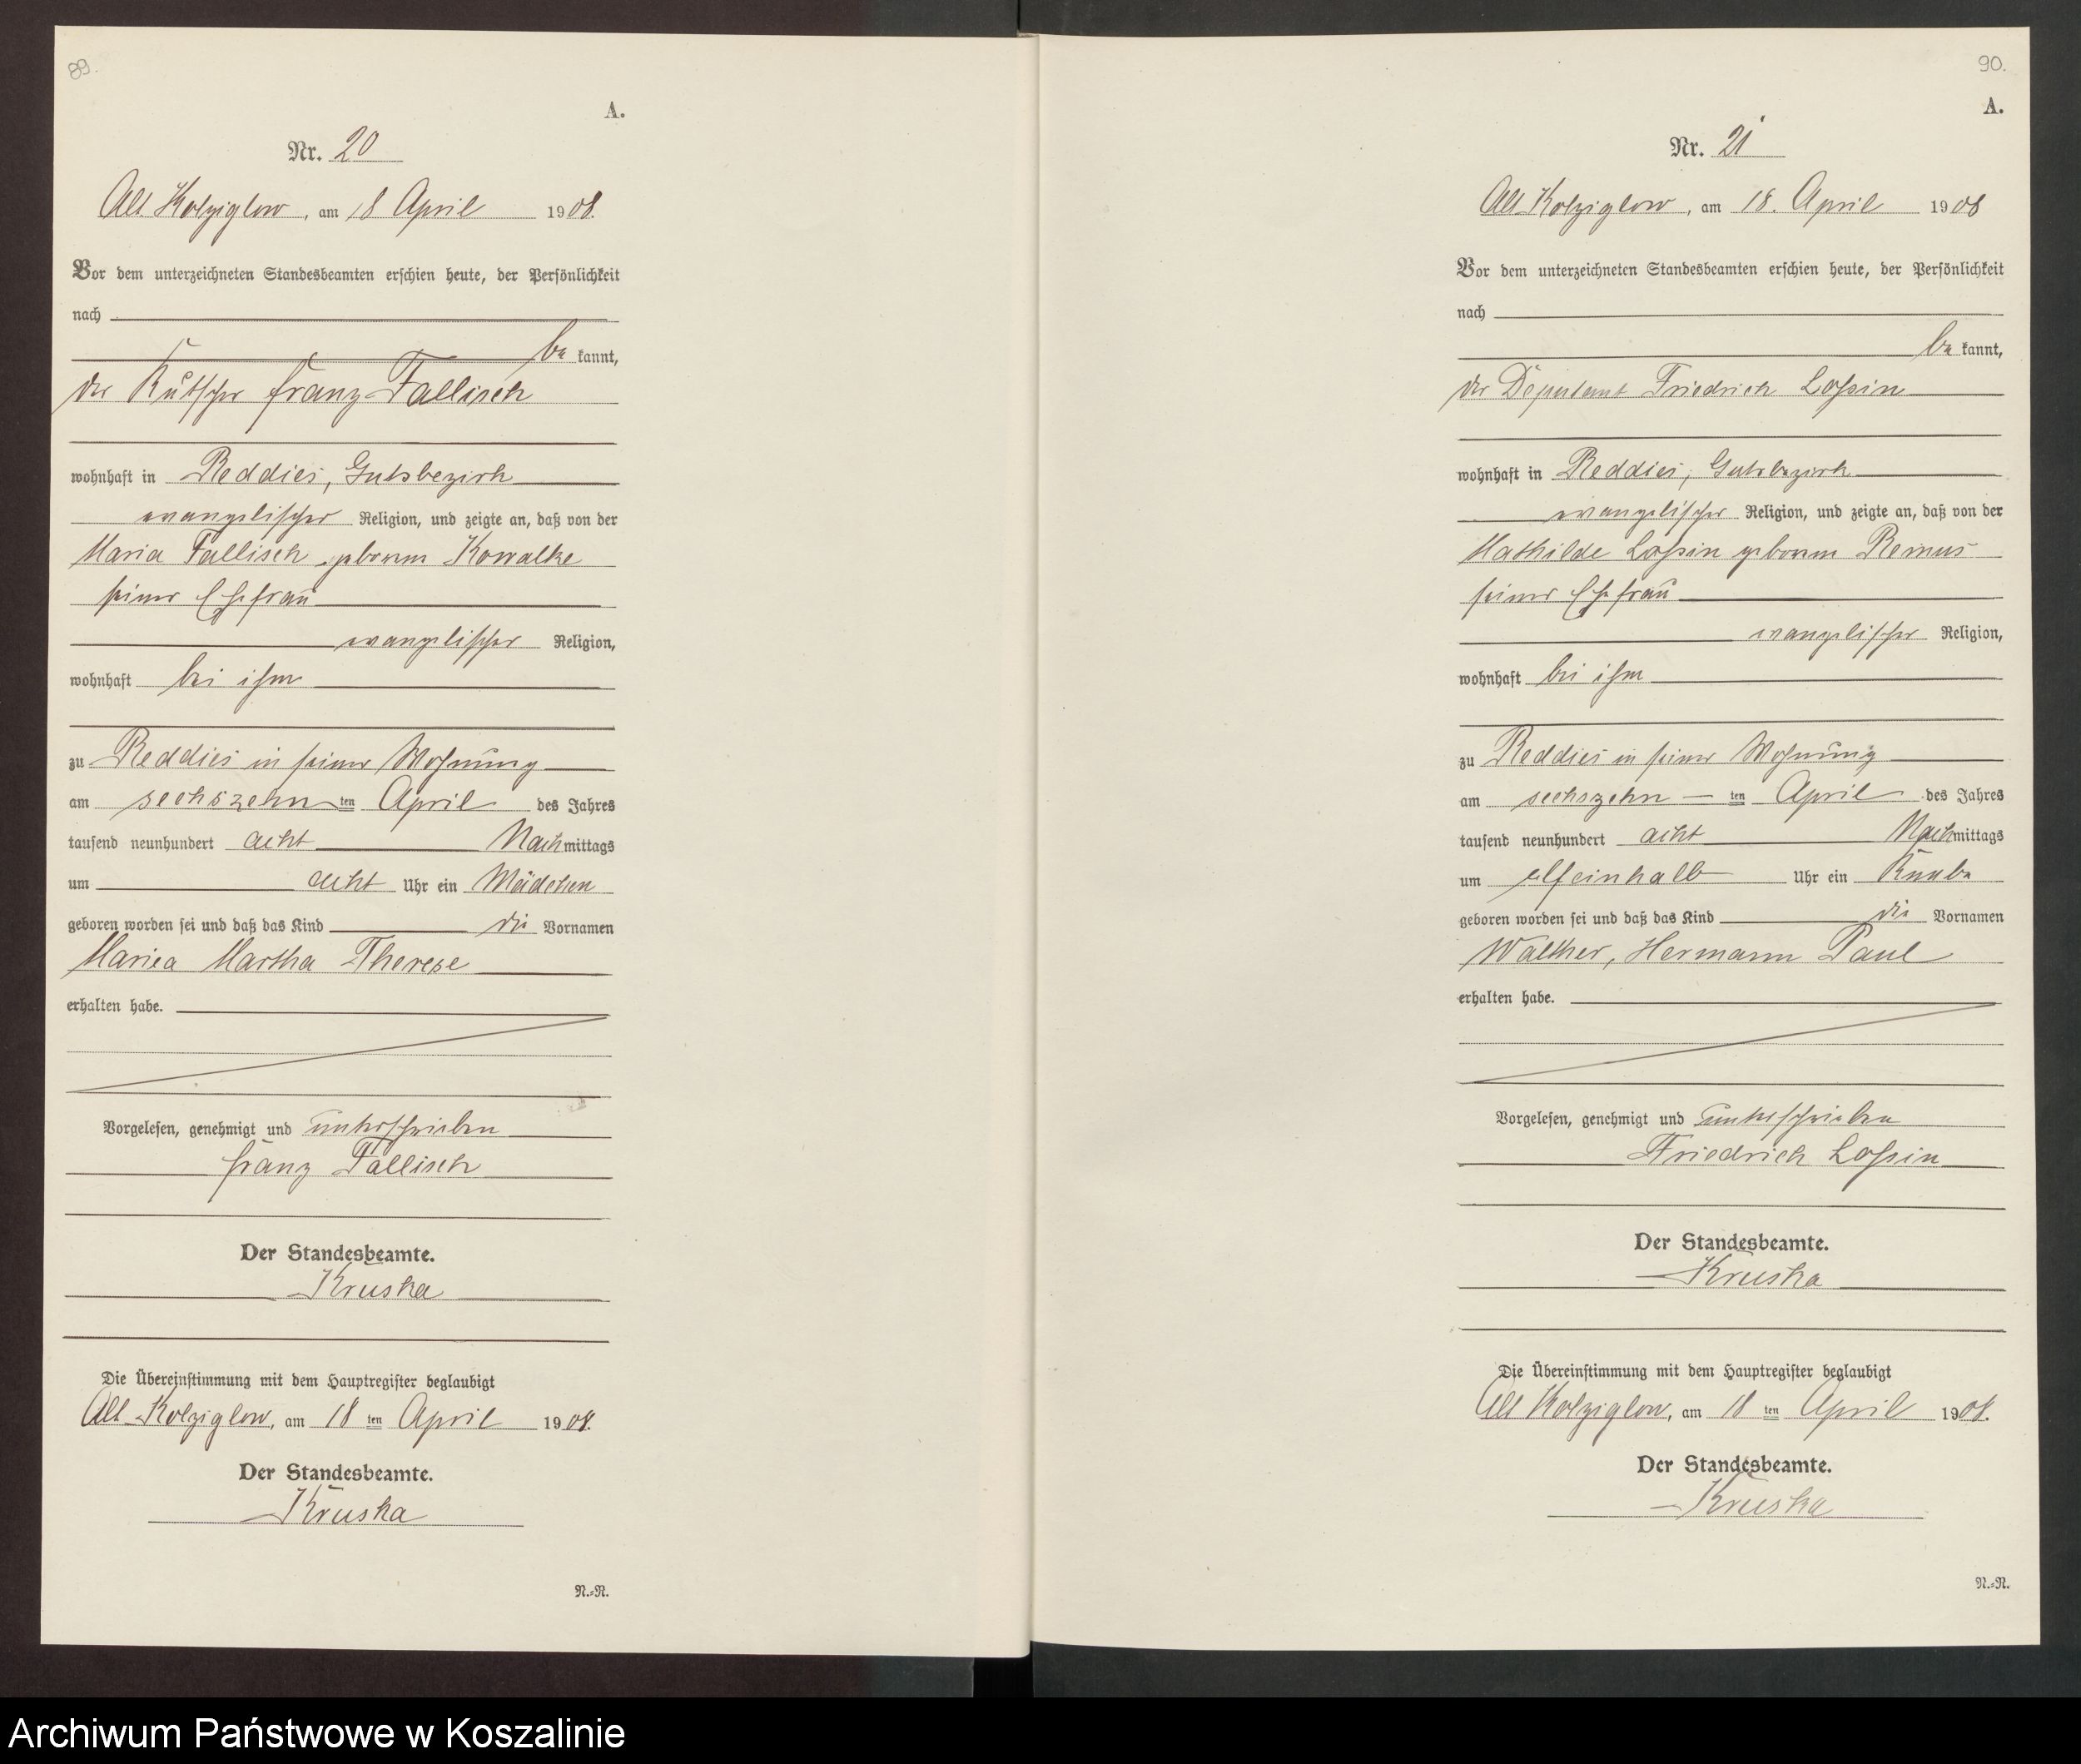 89.
A.
Nr. 20
Alt Kolziglow, am 18 April 1908.
Vor dem unterzeichneten Standesbeamten erschien heute, der Persönlichkeit
nach
be kannt,
der Kutscher Franz Fallisch
wohnhaft in Reddies, Gutsbezirk
evangelischer Religion, und zeigte an, daß von der
Maria Fallisch geborene Kowalke
seiner Ehefrau
evangelischer Religion,
wohnhaft bei ihm
zu Reddies in seiner Wohnung
am sechszehn ten April des Jahres
tausend neunhundert acht Nachmittags
um acht Uhr ein Mädchen
geboren worden sei und daß das Kind die Vornamen
Mariea Martha Therese
erhalten habe.
Vorgelesen, genehmigt und unterschrieben
Franz Fallisch
Der Standesbeamte.
Kruska
Die Übereinstimmung mit dem Hauptregister beglaubigt
Alt Kolziglow, am 18 ten April 1908.
Der Standesbeamte.
Kruska
N.=N.
90.
A.
Nr. 21
Alt Kolziglow, am 18. April 1908
Vor dem unterzeichneten Standesbeamten erschien heute, der Persönlichkeit
nach
be kannt,
der Deputant Friedrich Loßin
wohnhaft in Reddies, Gutsbezirk
evangelischer Religion, und zeigte an, daß von der
Mathilde Loßin geborene Remus
seiner Ehefrau
evangelischer Religion,
wohnhaft bei ihm
zu Reddies in seiner Wohnung
am sechszehn ten April des Jahres
tausend neunhundert acht Nachmittags
um elfeinhalb Uhr ein Knabe
geboren worden sei und daß das Kind die Vornamen
Walther, Hermann Paul
erhalten habe.
Vorgelesen, genehmigt und unterschrieben
Friedrich Loßin
Der Standesbeamte.
Kruska
Die Übereinstimmung mit dem Hauptregister beglaubigt
Alt Kolziglow, am 18 ten April 1908.
Der Standesbeamte.
Kruska
N.=N.
Archiwum Państwowe w Koszalinie